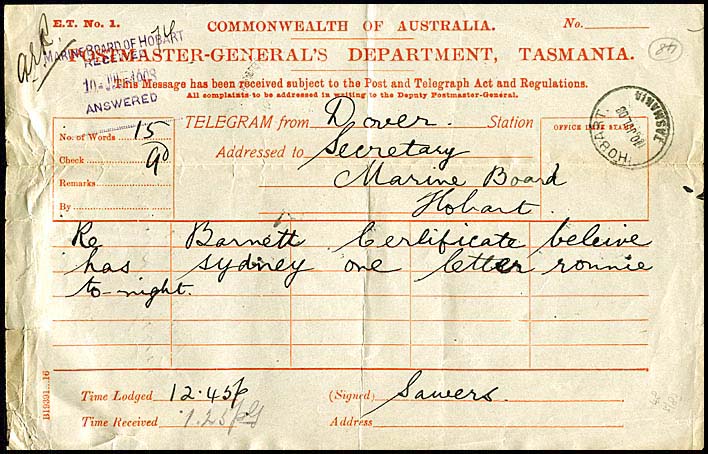 E.T. No. 1.
COMMONWEALTH OF AUSTRALIA.
No.
MARINE BOARD OF HOBART
RECEIVED
ANSWERED
POSTMASTER-GENERAL'S DEPARTMENT, TASMANIA.
48
This Message has been received subject to the Post and Telegraph Act and Regulations.
All complaints to be addressed in writing to the Deputy Postmaster-General.
No. of Words 15
TELEGRAM from Dover. Station
OFFICE DATE STAMP
HOBART
TASMANIA
Check
Addressed to Secretary
Remarks
Marine Board
By
Hobart.
Re Barnett Certificate beleive
has sydney one letter ronnie
to-night.
B19391.16
Time Lodged 12.45p
(Signed) Sawers.
Time Received 1.25p
Address